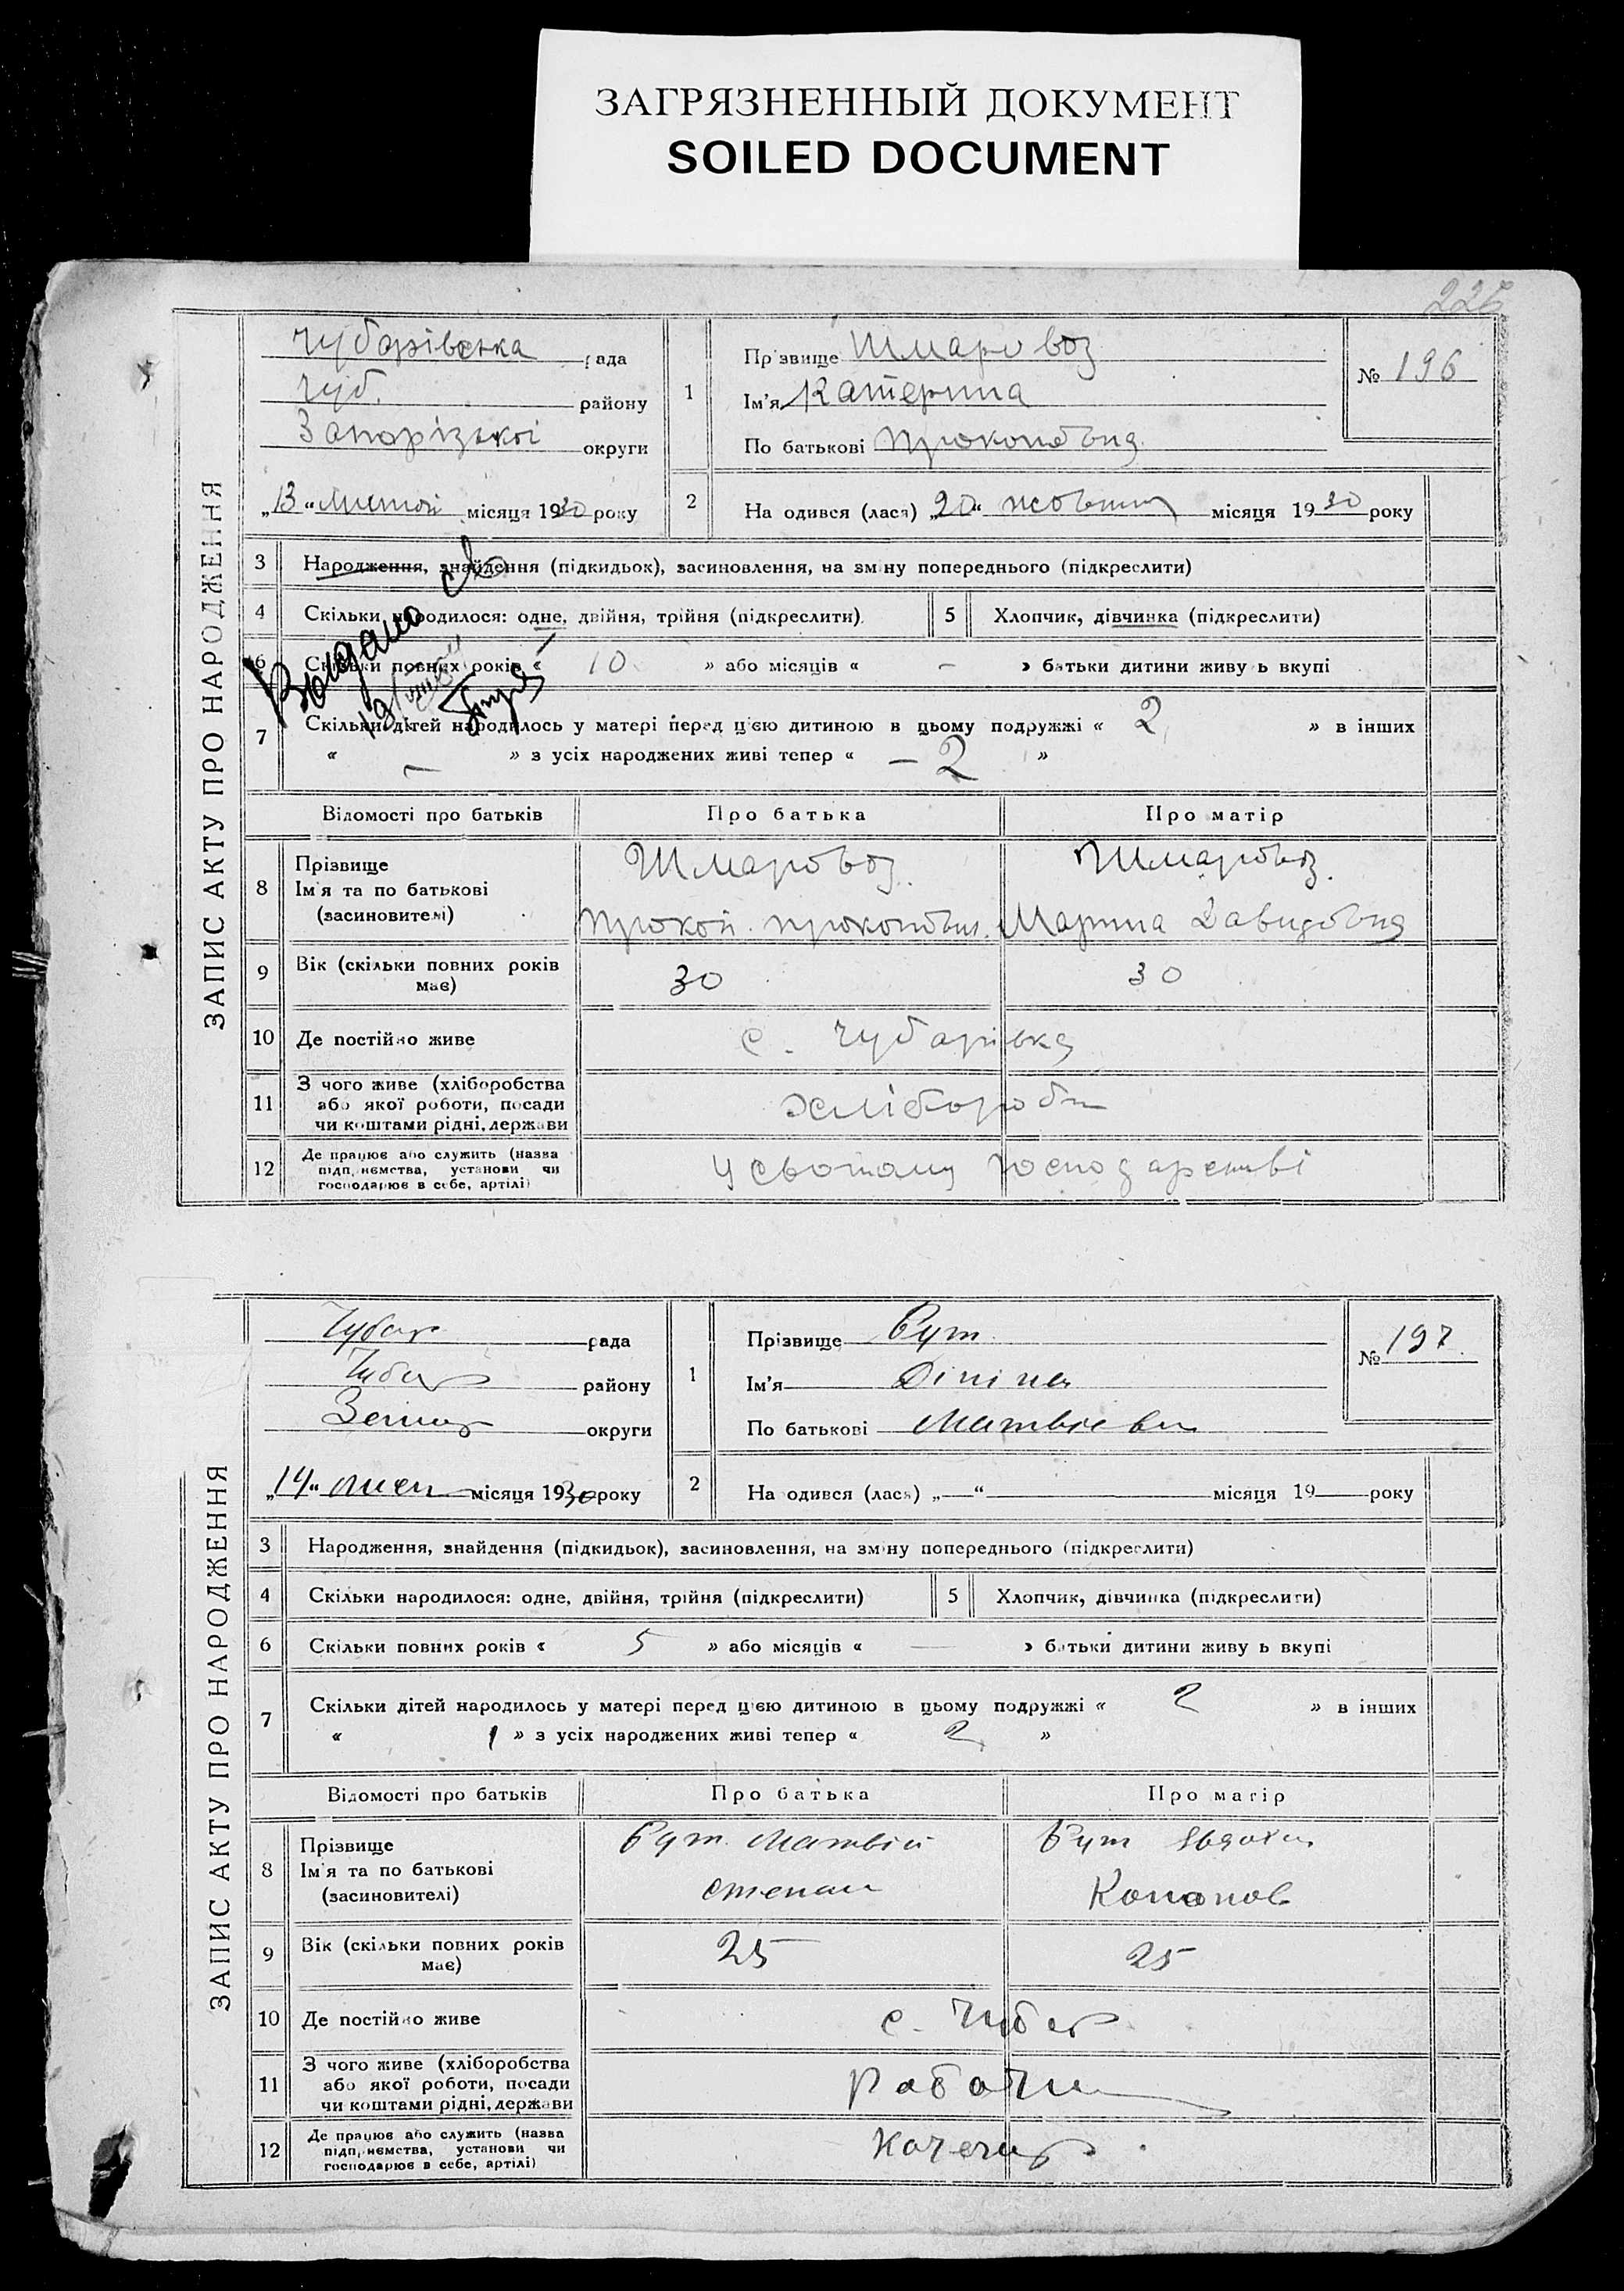 ЗАГРЯЗНЕННЫЙ ДОКУМЕНТ
SOILED DOCUMENT
ЗАПИС АКТУ ПРО НАРОДЖЕННЯ
Чубарівська рада
Чуб. району
Запорізької округи
„13“ листоп місяця 1930 року
1
Прізвище Шмаровоз
Ім'я Катерина
По батькові Прокоповна
№ 196
2
На одився (лася) „20“ жовтня місяця 1930 року
3 Народження, знайдення (підкидьок), засиновлення, на зміну попереднього (підкреслити)
4 Скільки народилося: одне, двійня, трійня (підкреслити).
5 Хлопчик, дівчинка (підкреслити)
6 Скільки повних років « 10 » або місяців « – » батьки дитини живу ь вкупі
7 Скільки дітей народилось у матері перед цією дитиною в цьому подружжі « 2 » в інших
« – » з усіх народжених живі тепер « – 2 »
Відомості про батьків Про батька Про матір
8 Прізвище
Ім'я та по батькові
(засиновителі)
Шмаровоз. Шмаровоз.
Прокоп. Прокопович. Марина Давидовна
9 Вік (скільки повних років має) 30 30
10 Де постійно живе с. Чубарівка
11 З чого живе (хліборобства
або якої роботи, посади
чи коштами рідні, держави
хлібороби
12 Де працює або служить (назва
підприємства, установи чи
господарює в себе, артілі)
У свойому господарстві
ЗАПИС АКТУ ПРО НАРОДЖЕННЯ
Чубар рада
Чубар району
Запор округи
„14“ лист місяця 1930 року
1
Прізвище Рут
Ім'я
По батькові Матвіевн
№ 197
2
На одився (лася) „—“ місяця 19 року
3 Народження, знайдення (підкидьок), засиновлення, на зміну попереднього (підкреслити)
4 Скільки народилося: одне, двійня, трійня (підкреслити)
5 Хлопчик, дівчинка (підкреслити)
6 Скільки повних років « 5 » або місяців « — » батьки дитини живу ь вкупі
7 Скільки дітей народилось у матері перед цією дитиною в цьому подружжі « 2 » в інших
« 1 » з усіх народжених живі тепер « 2 »
Відомості про батьків Про батька Про матір
8 Прізвище
Ім'я та по батькові
(засиновителі)
Рут Матвій Рут Явдоха
Степан Кононов
9 Вік (скільки повних років має) 25 25
10 Де постійно живе с. Чубар
11 З чого живе (хліборобства
або якої роботи, посади
чи коштами рідні, держави
Рабочи
12 Де працює або служить (назва
підприємства, установи чи
господарює в себе, артілі)
Кочегар